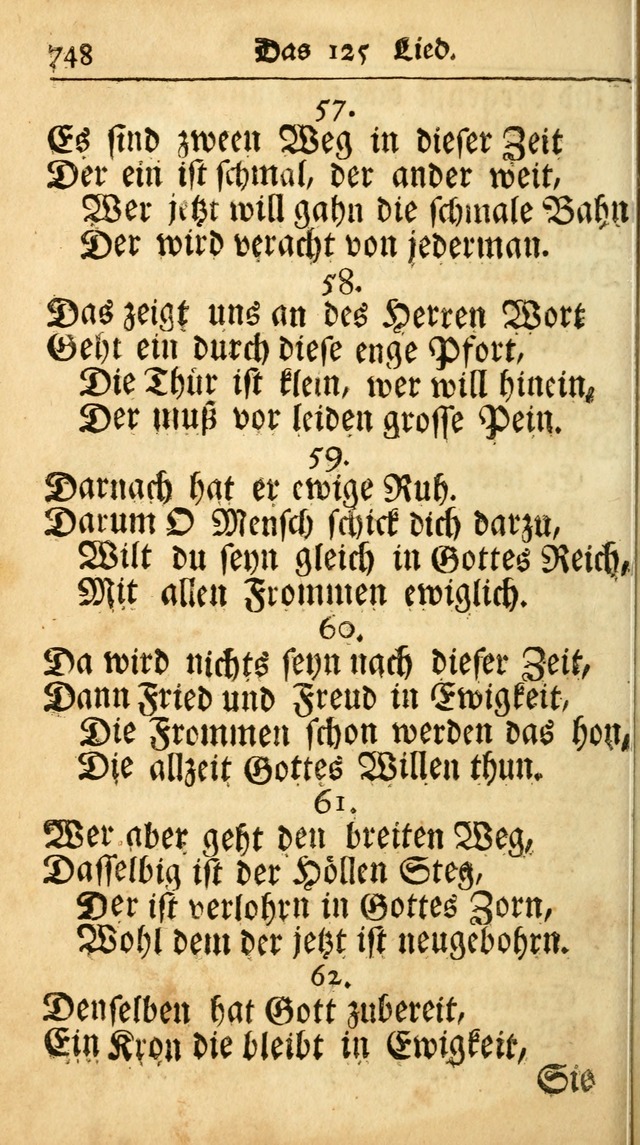 748 Das 125 Lied.
57.
Es sind zween Weg in dieser Zeit
Der ein ist schmal, der ander weit,
Wer jetzt will gahn die schmale Bahn
Der wird veracht von jederman.
58.
Das zeigt uns an des Herren Wort
Geht ein durch diese enge Pfort,
Die Thür ist klein, wer will hinein,
Der muß vor leiden grosse Pein.
59.
Darnach hat er ewige Ruh.
Darum O Mensch schick dich darzu,
Wilt du seyn gleich in Gottes Reich,
Mit allen Frommen ewiglich.
60.
Da wird nichts seyn nach dieser Zeit,
Dann Fried und Freud in Ewigkeit,
Die Frommen schon werden das hon,
Die allzeit Gottes Willen thun.
61.
Wer aber geht den breiten Weg,
Dasselbig ist der Höllen Steg,
Der ist verlohrn in Gottes Zorn,
Wohl dem der jetzt ist neugebohrn.
62.
Denselben hat Gott zubereit,
Ein Kron die bleibt in Ewigkeit,
Sie